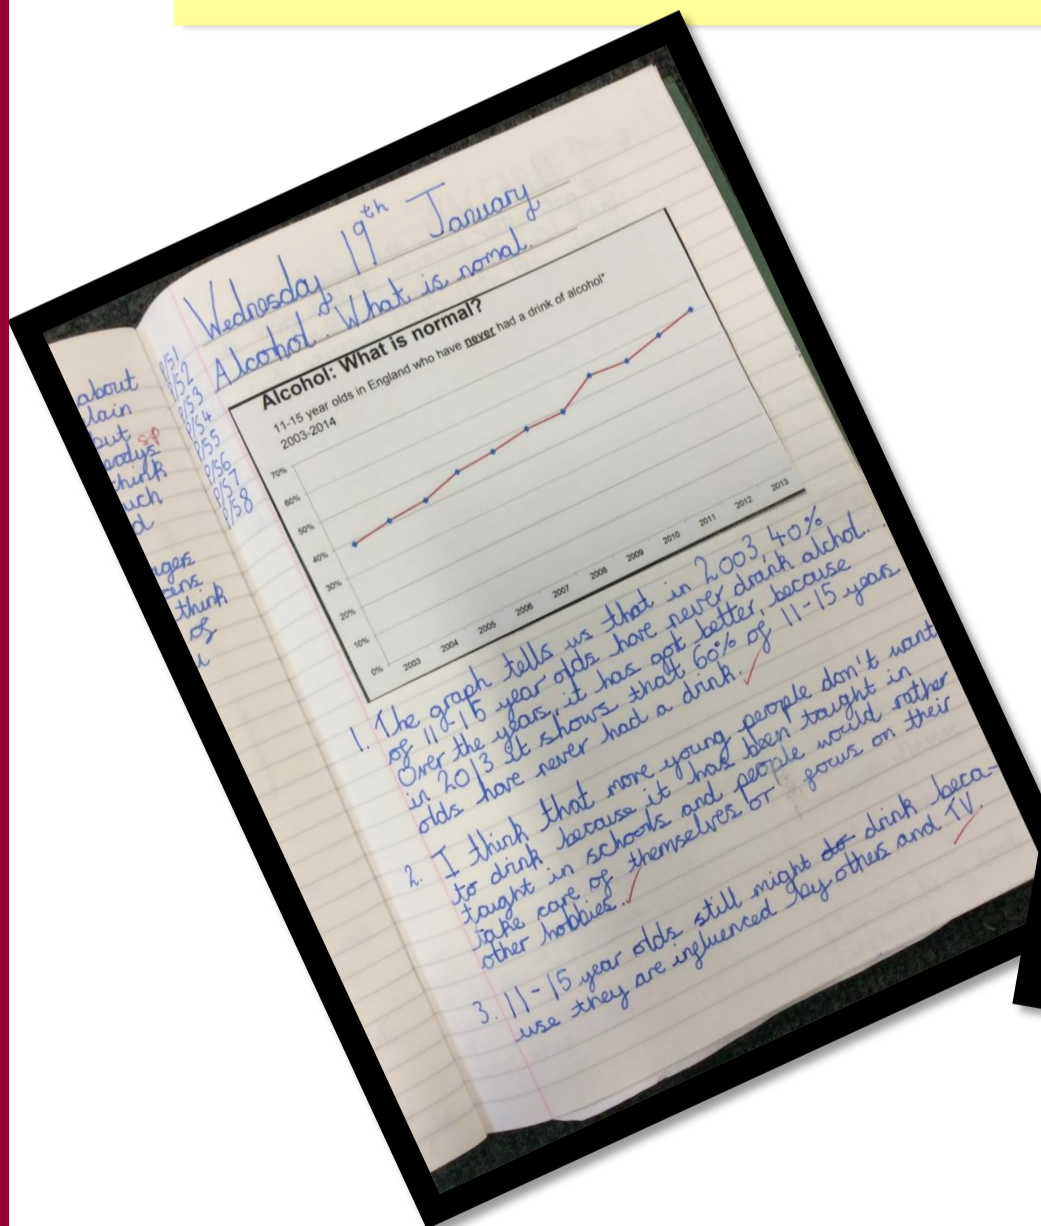 about
lain
but
sp
think
uch
d
think
of
P/51
P/52
P/53
P/54
P/55
P/56
P/57
P/58
Wednesday 19th January
Alcohol. What is nomal.
Alcohol: What is normal?
11-15 year olds in England who have never had a drink of alcohol*
2003-2014
70%
60%
50%
40%
30%
20%
10%
0%
2003 2004 2005 2006 2007 2008 2009 2010 2011 2012 2013
1. The graph tells us that in 2003, 40%
of 11-15 year olds have never drank alchol.
Over the years, it has got better, because
in 2013 it shows that 60% of 11-15 years
olds have never had a drink.
2. I think that more young people don't want
to drink because it has been taught in
taught in schools and people would rather
take care of themselves or focus on their
other hobbies.
3. 11-15 year olds still might do drink beca-
use they are influenced by others and TV.